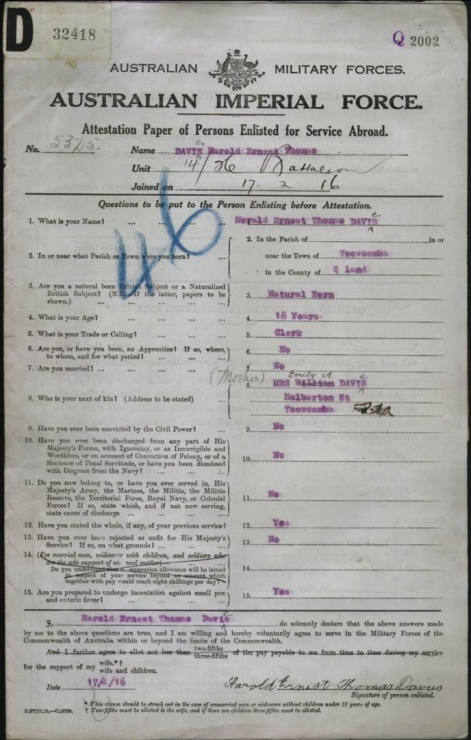 D 32418
Q 2002
AUSTRALIAN MILITARY FORCES.
AUSTRALIAN IMPERIAL FORCE.
Attestation Paper of Persons Enlisted for Service Abroad.
No. Name DAVIS Harold Ernest Thomas
Unit 14/26 Battalion
Joined on 17- 2 16
Questions to be put to the Person Enlisting before Attestation.
46
1. What is your Name? ... ... 1. Harold Ernest Thomas DAVIS
2. In or near what Parish or Town were you born? ... 2. In the Parish of in or
near the Town of Toowoomba
in the County of Q land
3. Are you a natural born British Subject or a Naturalized
British Subject? (N.B. If the latter, papers to be
shown.) 3. Natural Born
4. What is your Age? ... ... 4. 18 Years
5. What is your Trade or Calling? ... 5. Clerk
6. Are you, or have you been, an Apprentice? If so, where,
to whom, and for what period? ... 6. No
7. Are you married? ... ... 7. No
(Mother) Emily A.
8. Who is your next of kin? (Address to be stated) 8. MRS William DAVIS
Holberton St
Toowoomba
9. Have you ever been convicted by the Civil Power? 9. No
10. Have you ever been discharged from any part of His
Majesty's Forces, with Ignominy, or as Incorrigible and
Worthless, or on account of Conviction of Felony, or of a
Sentence of Penal Servitude, or have you been dismissed
with Disgrace from the Navy? ... 10. No
11. Do you now belong to, or have you ever served in, His
Majesty's Army, the Marines, the Militia, the Militia
Reserve, the Territorial Force, Royal Navy, or Colonial
Forces? If so, state which, and if not now serving,
state cause of discharge ... 11. No
12. Have you stated the whole, if any, of your previous service? 12. Yes
13. Have you ever been rejected as unfit for His Majesty's
Service? If so, on what grounds? ... 13. No
14. (For married men, widowers with children, and soldiers who
are the sole support of widowed mother)
Do you understand that no separation allowance will be issued
in respect of your service beyond an amount which
together with pay would reach eight shillings per day? 14.
15. Are you prepared to undergo inoculation against small pox
and enteric fever? ... 15. Yes
I, Harold Ernest Thomas Davis do solemnly declare that the above answers made
by me to the above questions are true, and I am willing and hereby voluntarily agree to serve in the Military Forces of the
Commonwealth of Australia within or beyond the limits of the Commonwealth.
And I further agree to allot not less than two-fifths three-fifths of the pay payable to me from time to time during my service
for the support of my wife.*† wife and children.
Date 17/2/16 Harold Ernest Thomas Davies
Signature of person enlisted.
* This clause should be struck out in the case of unmarried men or widowers without children under 18 years of age.
† Two-fifths must be allotted to the wife, and if there are children three-fifths must be allotted.